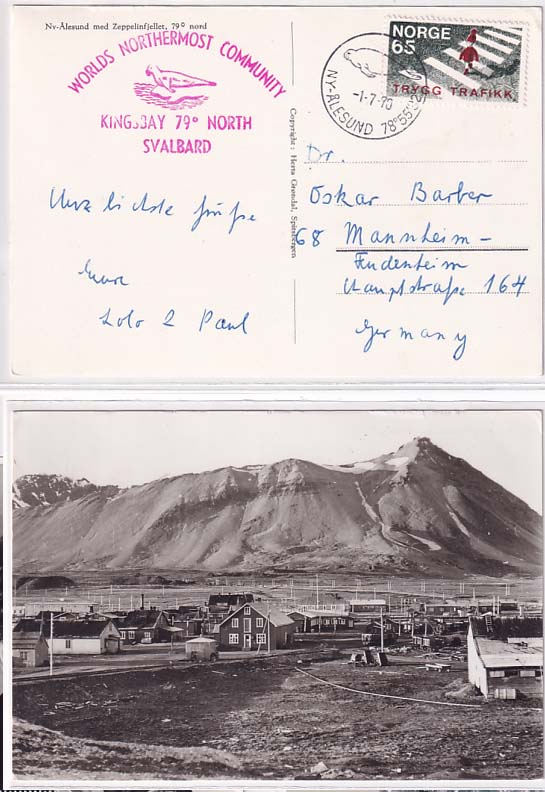 Ny-Ålesund med Zeppelinfjellet, 79° nord
WORLDS NORTHERMOST COMMUNITY
KINGSBAY 79° NORTH
SVALBARD
NORGE
65
TRYGG TRAFIKK
NY-ÅLESUND 78°55'
-1-7-70
Copyright: Herta Grøndal, Spitsbergen
Herzlichste Grüße
Eure
Lolo & Paul
Dr.
Oskar Barber
68 Mannheim-
Feudenheim
Hauptstraße 164
Germany